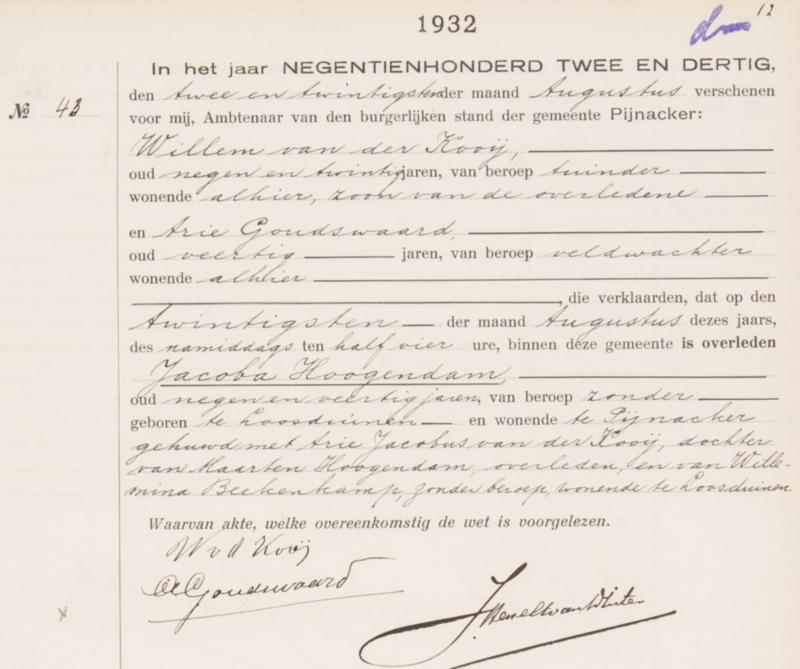 12
1932
In het jaar NEGENTIENHONDERD TWEE EN DERTIG,
№ 43
den twee en twintigsten der maand Augustus verschenen
voor mij, Ambtenaar van den burgerlijken stand der gemeente Pijnacker:
Willem van der Kooij,
oud negen en twintig jaren, van beroep tuinder
wonende alhier, zoon van de overledene
en Arie Goudswaard,
oud veertig jaren, van beroep veldwachter
wonende alhier
, die verklaarden, dat op den
twintigsten der maand Augustus dezes jaars,
des namiddags ten half vier ure, binnen deze gemeente is overleden
Jacoba Hoogendam,
oud negen en veertig jaren, van beroep zonder
geboren te Loosduinen en wonende te Pijnacker
gehuwd met Arie Jacobus van der Kooij, dochter
van Maarten Hoogendam, overleden, en van Wille-
mina Beekenkamp, zonder beroep, wonende te Loosduinen.
Waarvan akte, welke overeenkomstig de wet is voorgelezen.
W v d Kooij
A Goudswaard
x